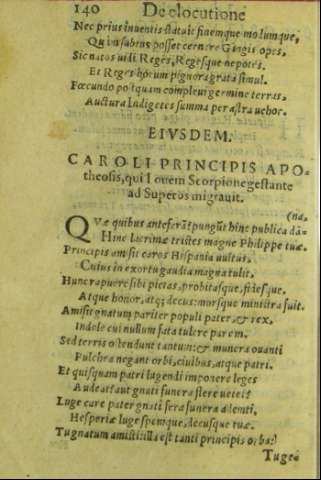 140 De elocutione
Nec prius inuentis statuit finemque modumque,
Quàm sabrus posset cernere Gingis opes,
Sic natos uidi Reges, Regesque nepotes.
Et Reges horum pignora grata simul.
Foecundo postquam compleui germine terras,
Auctura Indigetes summa per astra uehor.
EIVSDEM.
CAROLI PRINCIPIS APO-
theosis, qui Iouem Scorpione gestante
ad Superos migrauit.
(na,
QVæ quibus anteferã? pungũt hinc publica dã-
Hinc lacrimæ tristes magne Philippe tuæ.
Principis amisit caros Hispania uultus,
Cuius in exortu gaudia magna tulit,
Hunc rapuere sibi pietas, probitasque, fidesque,
Atque honor, atq; decus: morsque minitra fuit.
Amisit gnatum pariter populi pater, & rex,
Indole cui nullum fata tulere parem.
Sed terris ostendunt tantum: & munera ouanti
Pulchra negant orbi, ciuibus, atque patri.
Et quisquam patri lugendi imponere leges
Audeat? aut gnati funera flere uetet?
Luge care pater gnati fera funera adempti,
Hesperiæ luge spemque, decusque tuæ.
Tu gnatum amisti: illa est tanti principis orba:
Tu geà